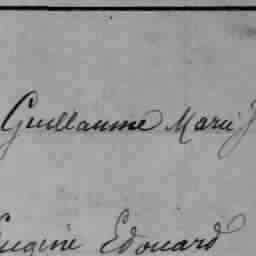 Guillaume Marie J
Eugène Edouard